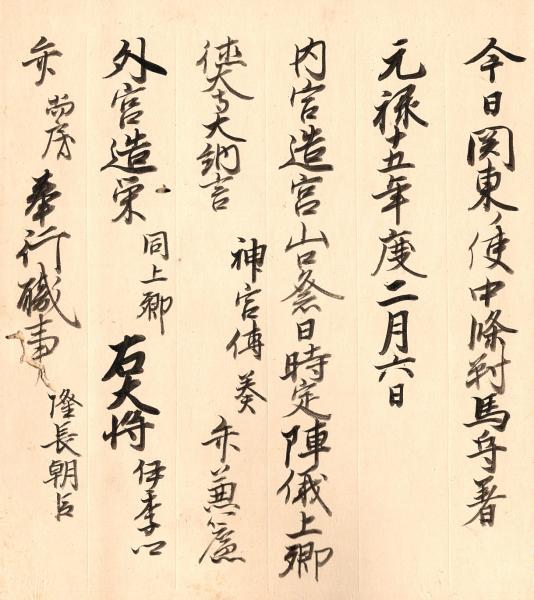 今日関東ノ使中條対馬守着
元禄十五年度二月六日
内宮造宮山口祭日時定陣儀上卿
徳大寺大納言 神宮傳奏 弁兼廉
外宮造栄 同上卿 右大将 伊季公
弁 尚房 奉行職事 隆長朝臣